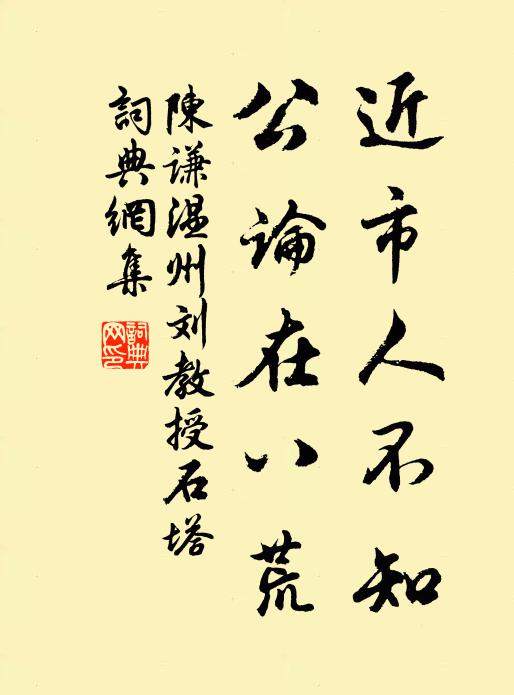 近市人不知
公論在八荒
陳謙温州刘教授石塔
詞典網集
詞典網印